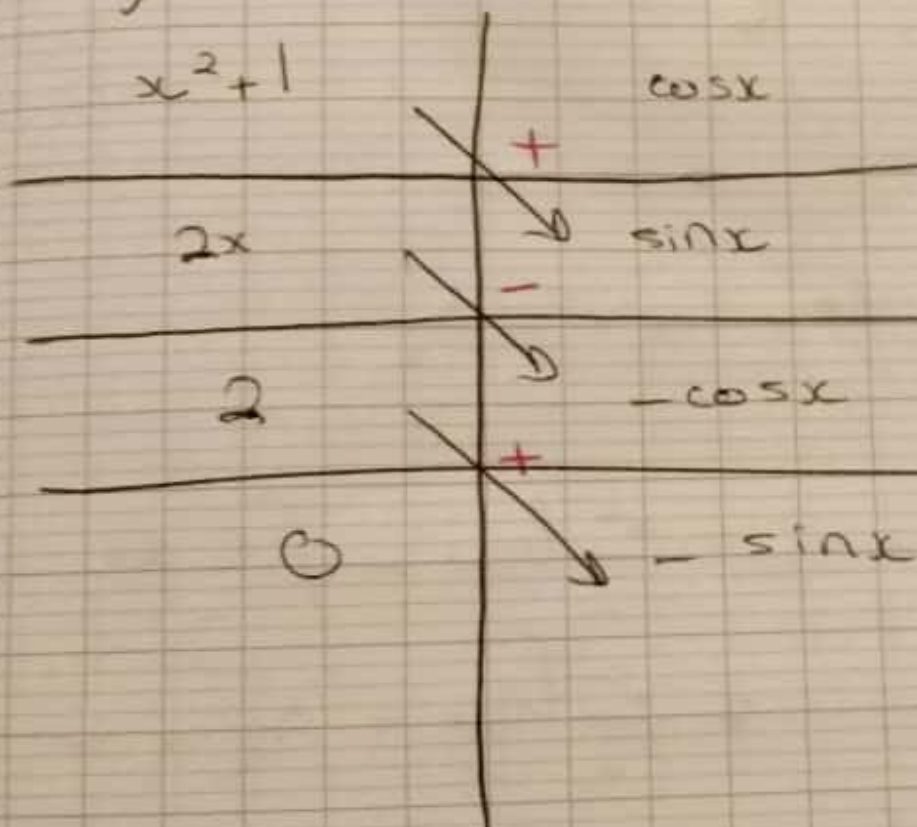 x²+1 cosx
+
2x sinx
−
2 −cosx
+
0 − sinx